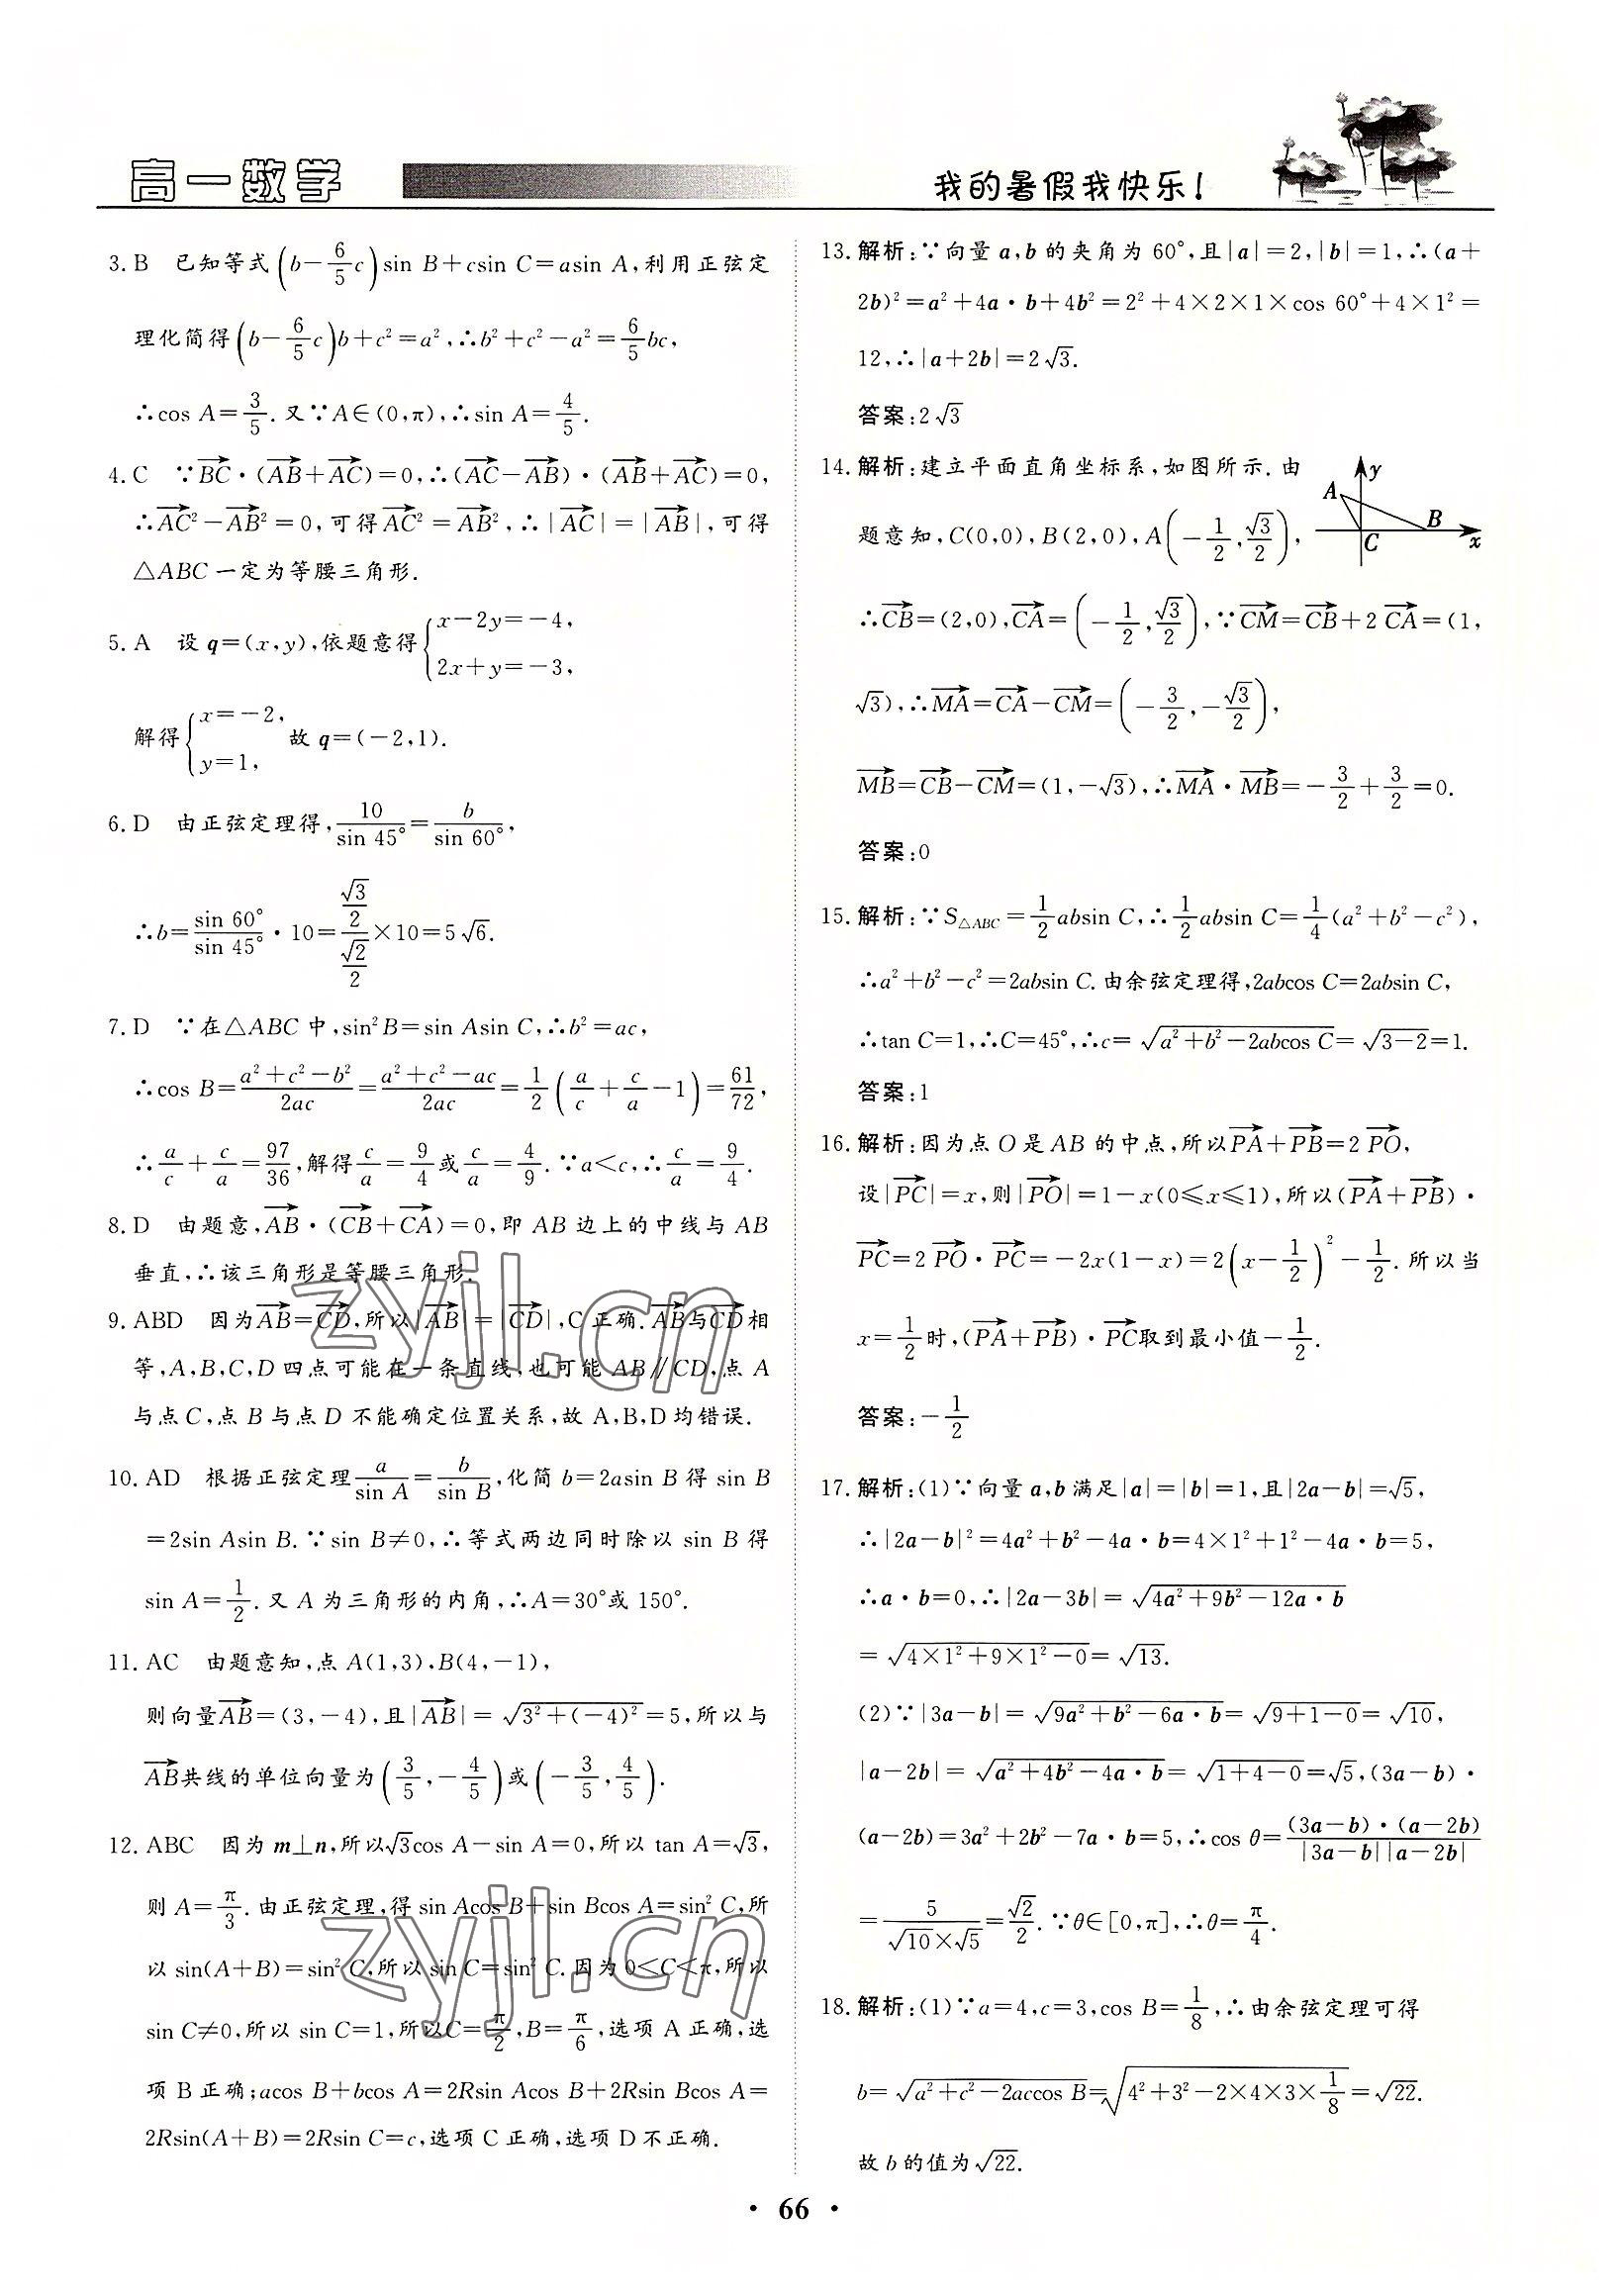 高一数学
我的暑假我快乐！
3. B 已知等式(b−6/5c)sin B+csin C=asin A,利用正弦定
理化简得(b−6/5c)b+c²=a²,∴b²+c²−a²=6/5bc,
∴cos A=3/5.又∵A∈(0,π),∴sin A=4/5.
4. C ∵BC→·(AB→+AC→)=0,∴(AC→−AB→)·(AB→+AC→)=0,
∴AC→²−AB→²=0,可得AC→²=AB→²,∴|AC→|=|AB→|,可得
△ABC一定为等腰三角形.
5. A 设q=(x,y),依题意得{x−2y=−4,
2x+y=−3,
解得{x=−2,
y=1,
故q=(−2,1).
6. D 由正弦定理得,10/sin 45°=b/sin 60°,
∴b=sin 60°/sin 45°·10=(√3/2)/(√2/2)×10=5√6.
7. D ∵在△ABC中,sin²B=sin Asin C,∴b²=ac,
∴cos B=(a²+c²−b²)/2ac=(a²+c²−ac)/2ac=1/2(a/c+c/a−1)=61/72,
∴a/c+c/a=97/36,解得c/a=9/4或c/a=4/9.∵a<c,∴c/a=9/4.
8. D 由题意,AB→·(CB→+CA→)=0,即AB边上的中线与AB
垂直,∴该三角形是等腰三角形.
9. ABD 因为AB→=CD→,所以|AB→|=|CD→|,C正确.AB→与CD→相
等,A,B,C,D四点可能在一条直线,也可能AB∥CD,点A
与点C,点B与点D不能确定位置关系,故A,B,D均错误.
10. AD 根据正弦定理a/sin A=b/sin B,化简b=2asin B得sin B
=2sin Asin B.∵sin B≠0,∴等式两边同时除以sin B得
sin A=1/2.又A为三角形的内角,∴A=30°或150°.
11. AC 由题意知,点A(1,3).B(4,−1),
则向量AB→=(3,−4),且|AB→|=√(3²+(−4)²)=5,所以与
AB→共线的单位向量为(3/5,−4/5)或(−3/5,4/5).
12. ABC 因为m⊥n,所以√3cos A−sin A=0,所以tan A=√3,
则A=π/3.由正弦定理,得sin Acos B+sin Bcos A=sin² C,所
以sin(A+B)=sin² C,所以sin C=sin² C.因为0<C<π,所以
sin C≠0,所以sin C=1,所以C=π/2,B=π/6,选项A正确,选
项B正确;acos B+bcos A=2Rsin Acos B+2Rsin Bcos A=
2Rsin(A+B)=2Rsin C=c,选项C正确,选项D不正确.
13. 解析:∵向量a,b的夹角为60°,且|a|=2,|b|=1,∴(a+
2b)²=a²+4a·b+4b²=2²+4×2×1×cos 60°+4×1²=
12,∴|a+2b|=2√3.
答案:2√3
14. 解析:建立平面直角坐标系,如图所示.由
题意知,C(0,0),B(2,0),A(−1/2,√3/2),
A
y
B
C
x
∴CB→=(2,0),CA→=(−1/2,√3/2),∵CM→=CB→+2CA→=(1,
√3),∴MA→=CA→−CM→=(−3/2,−√3/2),
MB→=CB→−CM→=(1,−√3),∴MA→·MB→=−3/2+3/2=0.
答案:0
15. 解析:∵S△ABC=1/2absin C,∴1/2absin C=1/4(a²+b²−c²),
∴a²+b²−c²=2absin C.由余弦定理得,2abcos C=2absin C,
∴tan C=1,∴C=45°,∴c=√(a²+b²−2abcos C)=√(3−2)=1.
答案:1
16. 解析:因为点O是AB的中点,所以PA→+PB→=2PO→,
设|PC→|=x,则|PO→|=1−x(0⩽x⩽1),所以(PA→+PB→)·
PC→=2PO→·PC→=−2x(1−x)=2(x−1/2)²−1/2.所以当
x=1/2时,(PA→+PB→)·PC→取到最小值−1/2.
答案:−1/2
17. 解析:(1)∵向量a,b满足|a|=|b|=1,且|2a−b|=√5,
∴|2a−b|²=4a²+b²−4a·b=4×1²+1²−4a·b=5,
∴a·b=0,∴|2a−3b|=√(4a²+9b²−12a·b)
=√(4×1²+9×1²−0)=√13.
(2)∵|3a−b|=√(9a²+b²−6a·b)=√(9+1−0)=√10,
|a−2b|=√(a²+4b²−4a·b)=√(1+4−0)=√5,(3a−b)·
(a−2b)=3a²+2b²−7a·b=5,∴cos θ=(3a−b)·(a−2b)/|3a−b||a−2b|
=5/(√10×√5)=√2/2.∵θ∈[0,π],∴θ=π/4.
18. 解析:(1)∵a=4,c=3,cos B=1/8,∴由余弦定理可得
b=√(a²+c²−2accos B)=√(4²+3²−2×4×3×1/8)=√22.
故b的值为√22.
· 66 ·
zyjl.cn
zyjl.cn